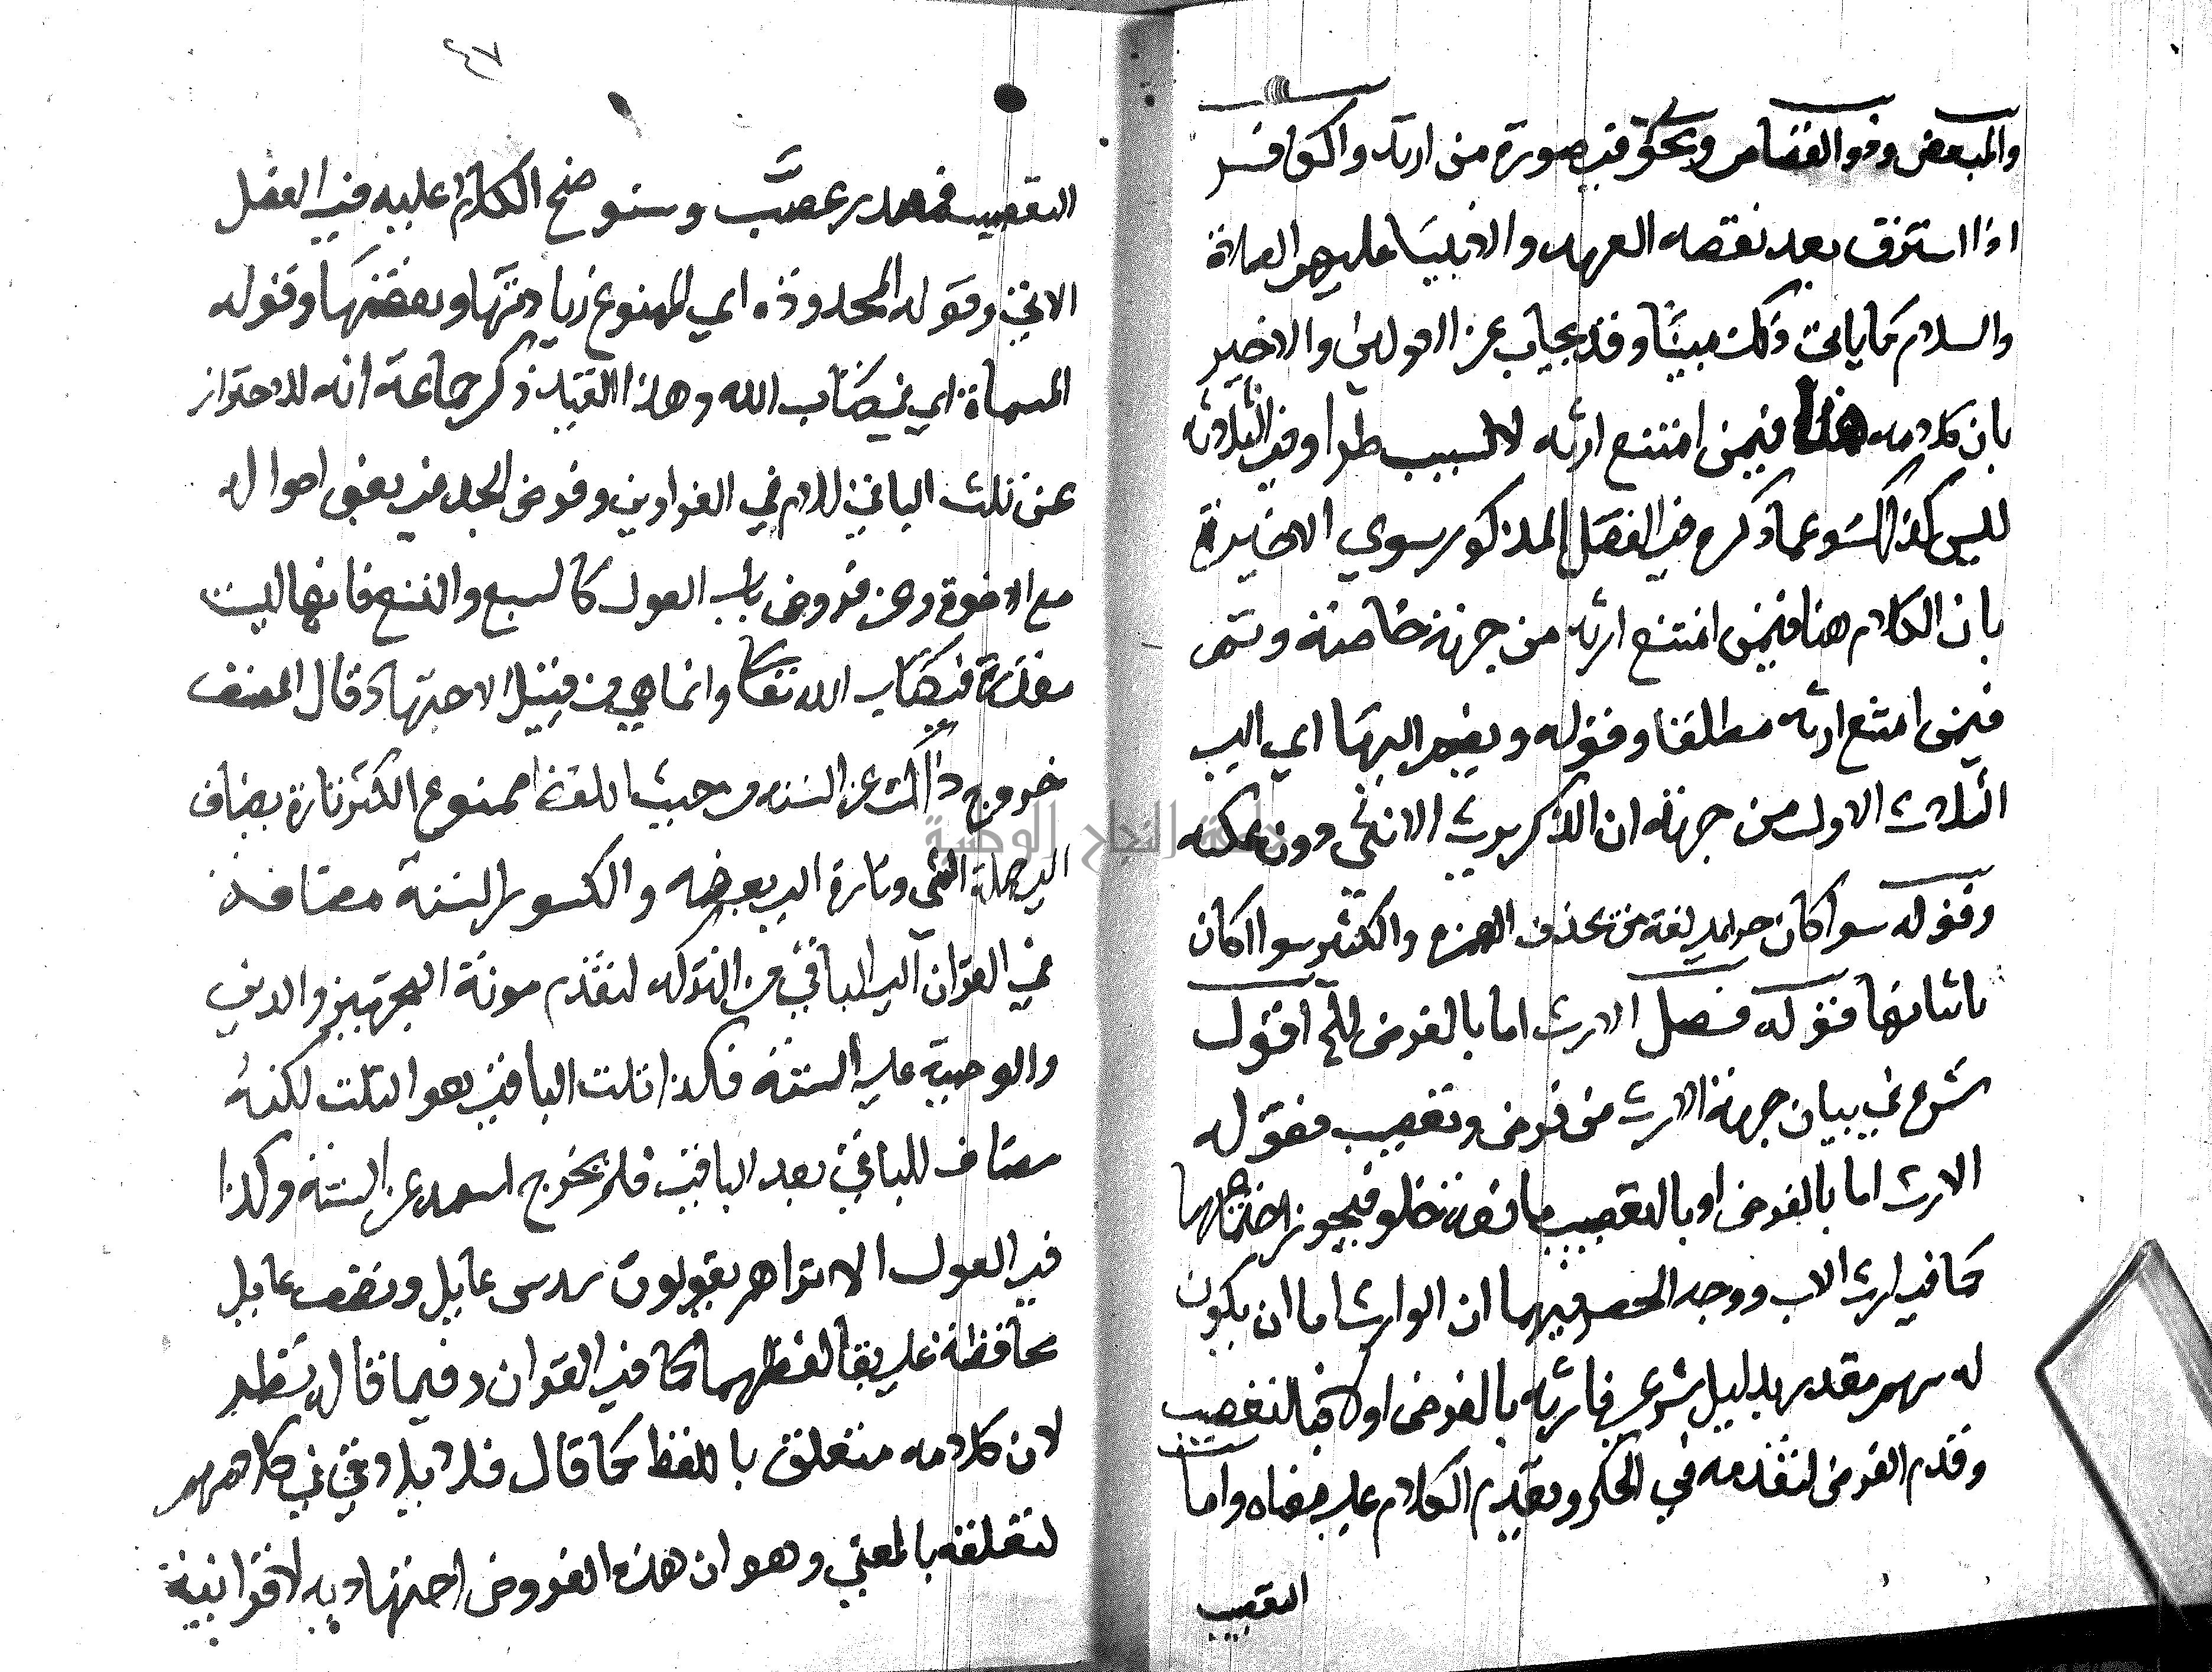 والمبعض وذو القصاص ونحوه في صورة من ارتد والكافر
اذا استرق بعد نقضه العهد والانبيا عليهم الصلاة
والسلام كما ياتي ذلك مبينا وقد يجاب عن الاولين والاخير
بان كلامه هنا فيمن امتنع ارثه لا لسبب طرا وفي الثلاثة
ليس كذلك وعما ذكره في الفصل المذكور سوي الاخيرة
بان الكلام هنا فيمن امتنع ارثه من جهة خاصة وثم
فيمن امتنع ارثه مطلقا وقوله ويضم اليها اي الي
الثلاث الاول من جهة ان الذكر يرث الانثي دون عكسه
وقوله سوا كان لغة من يحذف الهمزة والكثير سوا اكان
باثباتها قوله فصل الارث اما بالفرض الخ اقول
شرع في بيان جهة الارث من فرض وتعصيب فقوله
الارث اما بالفرض او بالتعصيب مانعة خلو فيجوز اجتماعهما
كما في ارث الاب ووجه الحصر فيهما ان الوارث اما ان يكون
له سهم مقدر بدليل شرعي فارثه بالفرض او لا فبالتعصيب
وقدم الفرض لتقدمه في الحكم وتقدم الكلام علي معناه واما
التعصيب
٤٧
التعصيب فمصدر عصب وسنوضح الكلام عليه في الفصل
الاتي وقوله المحدودة اي الممنوع زيادتها ونقصها وقوله
المسماة اي في كتاب الله وهذا القيد ذكر جماعة انه للاحتراز
عن ثلث الباقي للام في الغراوين وفرض الجد في بعض احواله
مع الاخوة وعن فروض باب العول كالسبع والتسع فانها ليست
مقدرة في كتاب الله تعالي وانما هي من قبيل الاجتهاد قال المصنف
خروج ذلك عن الستة من حيث اللفظ ممنوع الكسر تارة يضاف
الي جملة الشي وتارة الي بعضه والكسور الستة مضافة
في القران الي الباقي من التركه لتقدم مونة التجهيز والدين
والوصية علي الستة فكذا ثلث الباقي هو الثلث لكنه
مضاف للباقي بعد الباقي فلم يخرج اسمه عن الستة وكذا
في العول الا تراهم يقولون سدس عايل ونصف عايل
محافظة علي بقا لفظهما كما في القران وفيما قاله نظر
لان كلامه متعلق باللفظ كما قال فلا يلاقي كلامهم
لتعلقه بالمعني وهو ان هذه الفروض اجتهادية لا قرانية
جامعة النجاح الوطنية